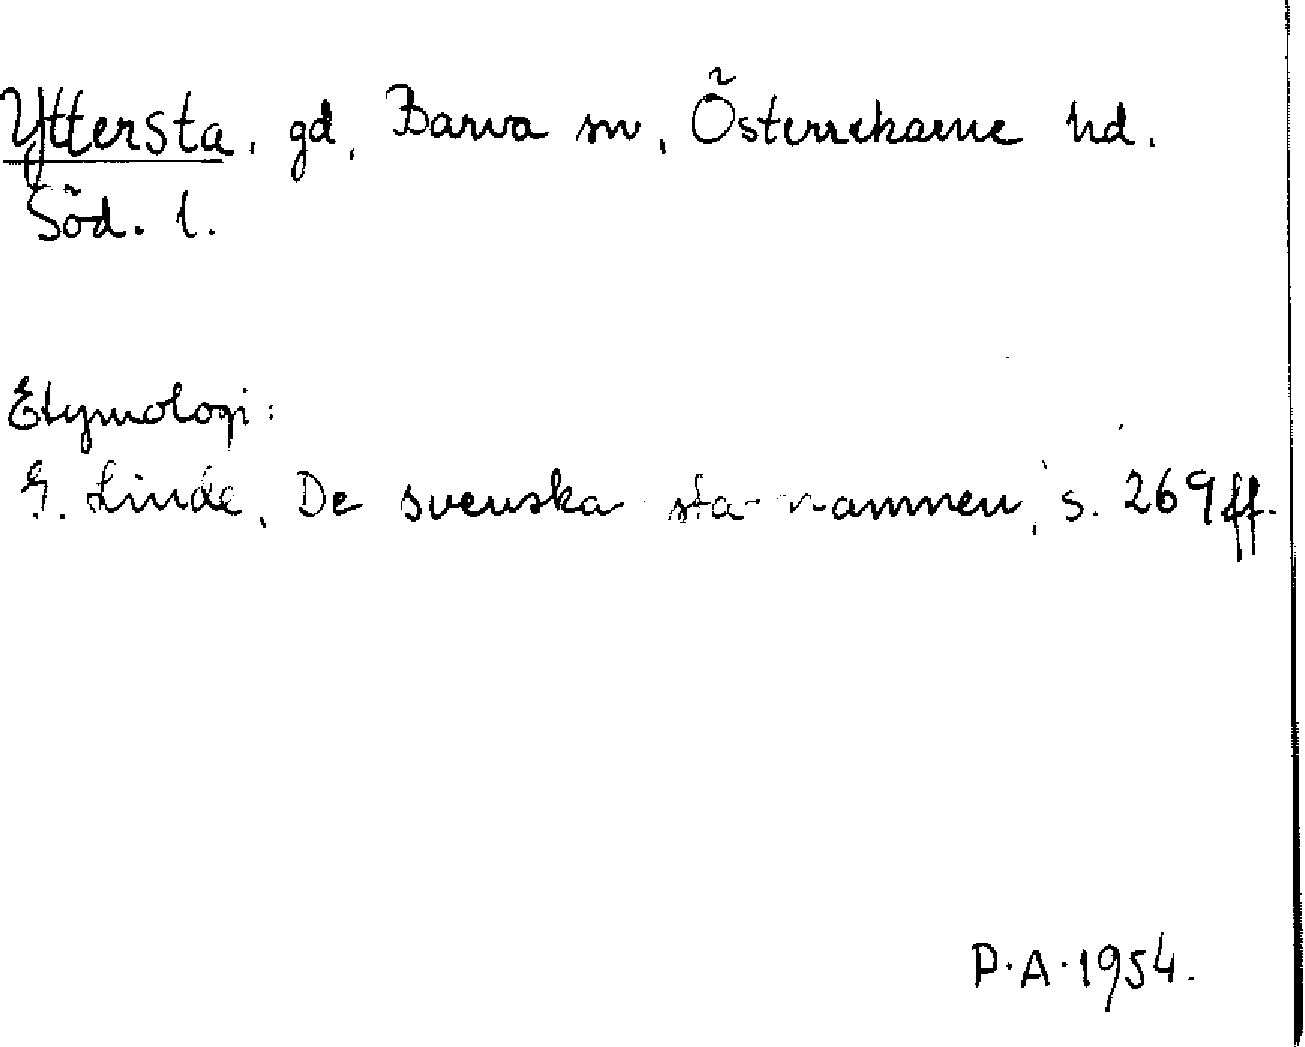 Yttersta, gd, Barva sn, Österrekarne hd.
Söd. l.
Etymologi:
G. Linde, De svenska sta-namnen, s. 269 ff.
P.A. 1954.